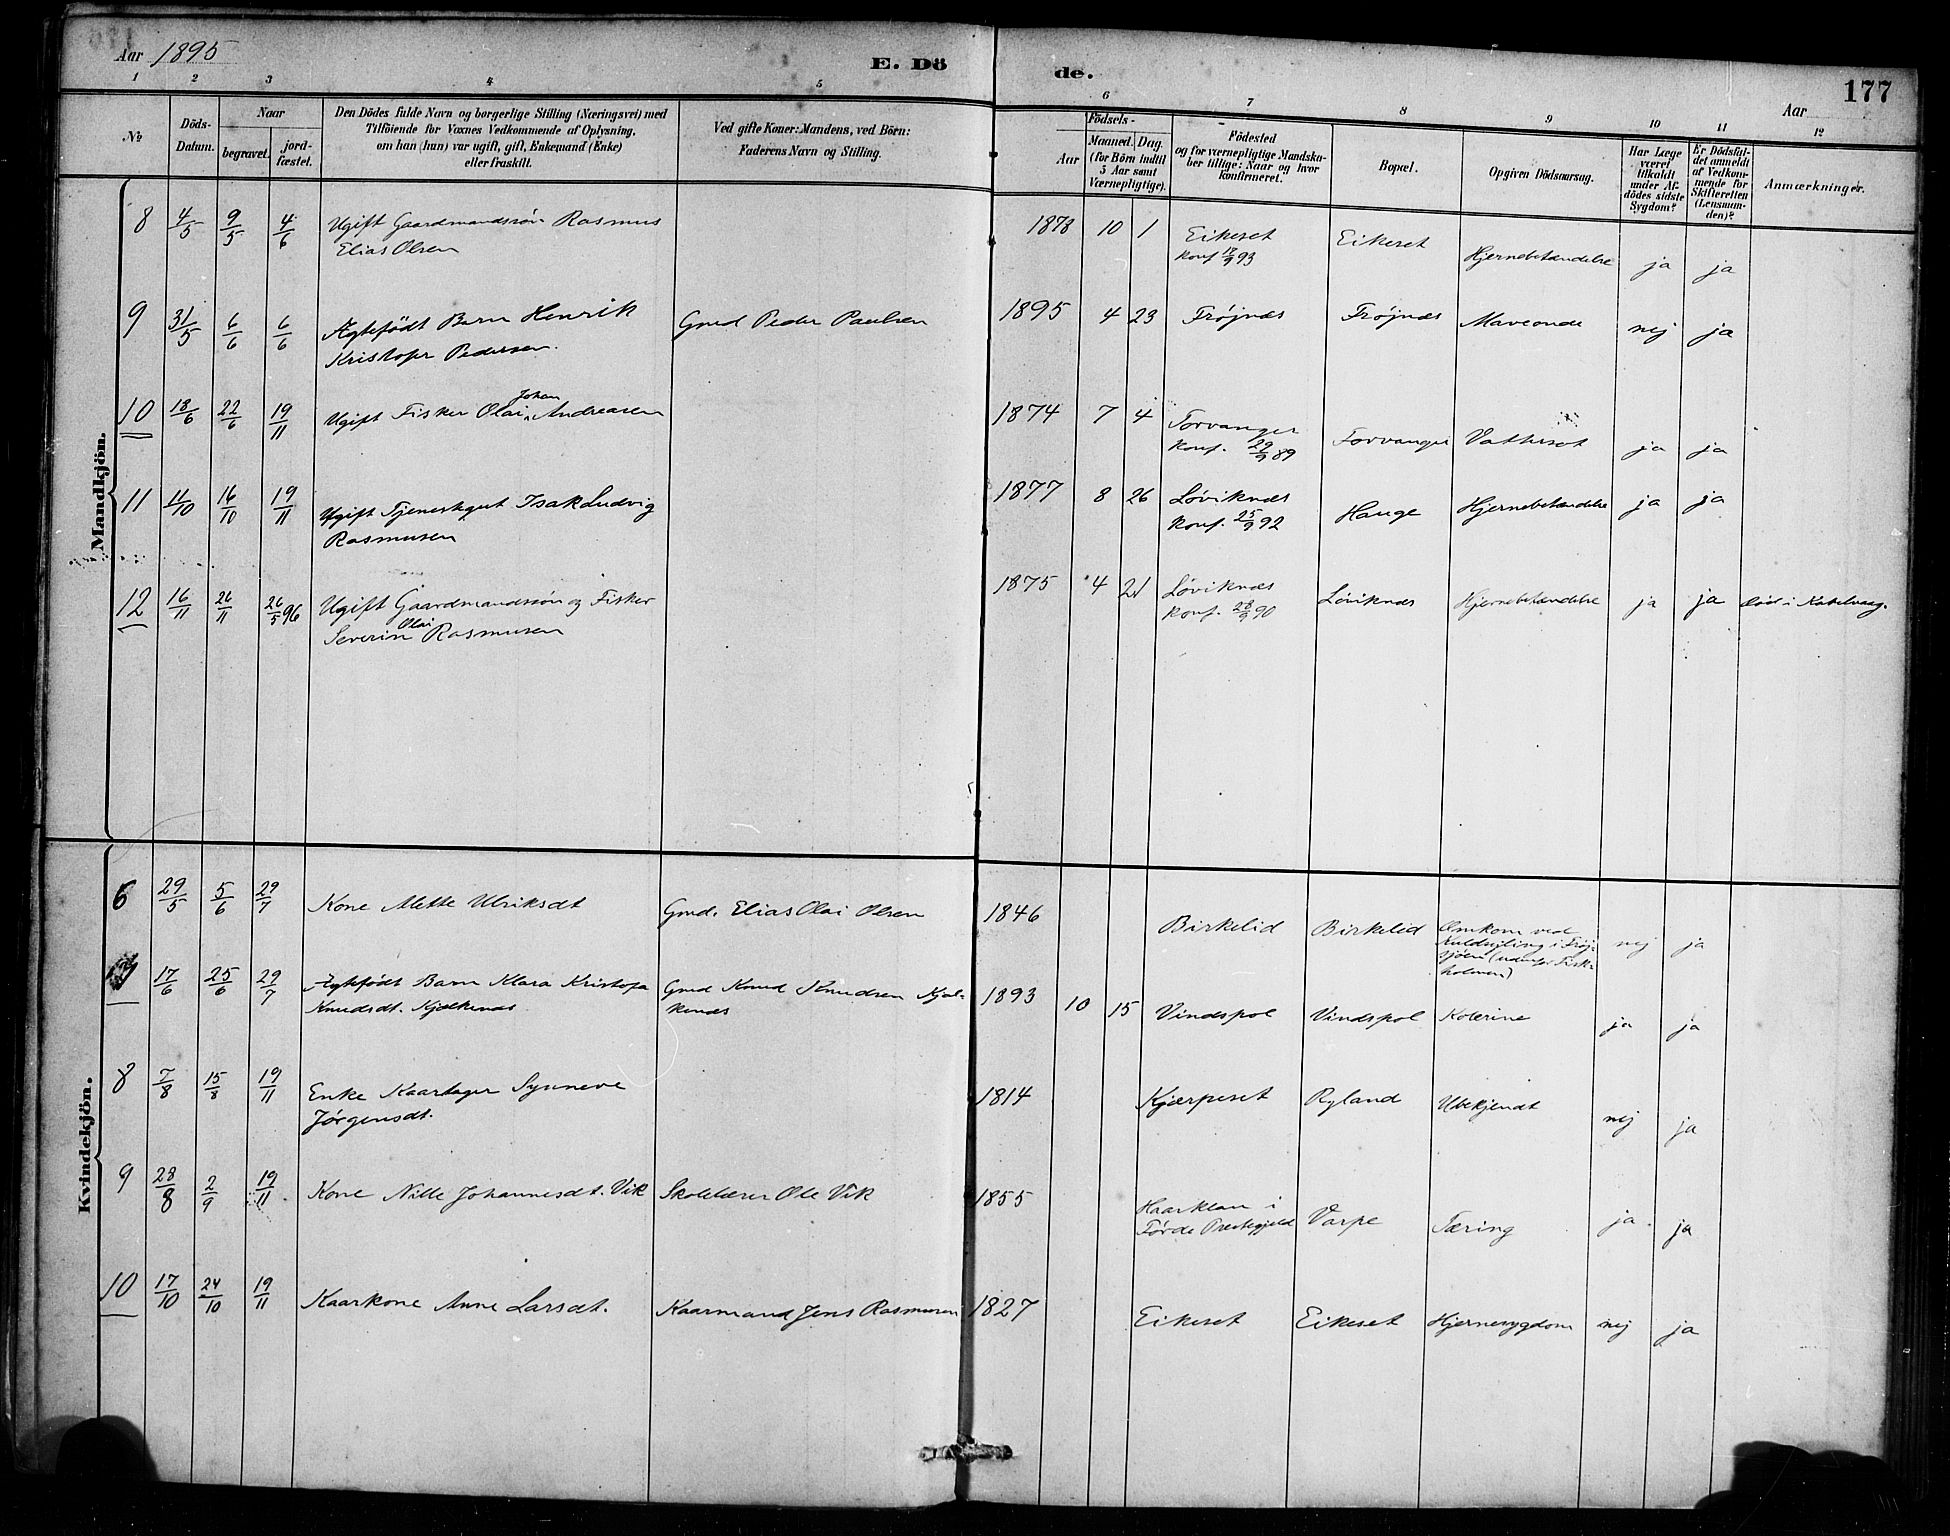 Aar 1895
E. Dö
de.
177
Aar
1 2 3 4 5 6 7 8 9 10 11 12
№
Döds-
Datum.
Naar
begravet.
jord-
fæstet.
Den Dödes fulde Navn og borgerlige Stilling (Næringsvei) med
Tilföiende for Voxnes Vedkommende af Oplysning,
om han (hun) var ugift, gift, Enkemand (Enke)
eller fraskilt.
Ved gifte Koner: Mandens, ved Börn:
Faderens Navn og Stilling.
Födsels-
Aar
Maaned. Dag.
(for Börn indtil
5 Aar samt
Værnepligtige).
Födested
og for værnepligtige Mandska-
ber tillige: Naar og hvor
konfirmeret.
Bopæl.
Opgiven Dödsaarsag.
Har Læge
været
tilkaldt
under Af-
dödes sidste
Sygdom?
Er Dödsfal-
det anmeldt
af Vedkom-
mende for
Skifteretten
(Lensman-
den)?
Anmærkninger.
Mandkjön.
8 4/5 9/5 4/6 Ugift Gaardmandssön Rasmus 1878 10 1 Eikeset Eikeset Hjernebetændelse ja ja
Elias Olsen konf. 17/9 93
9 31/5 6/6 6/6 Ægtefödt Barn Henrik Gmd Peder Paulsen 1895 4 23 Frøjnæs Frøjnæs Maveonde nej ja
Kristofer Pedersen.
10 18/6 22/6 19/11 Ugift Fisker Olai Johan Andreasen 1874 7 4 Torvanger Torvanger Vattersot ja ja
konf. 29/9 89
11 11/10 16/10 19/11 Ugift Tjenestegut Isak Ludvig 1877 8 26 Løviknæs Hauge Hjernebetændelse ja ja
Rasmusen konf. 25/9 92
12 16/11 26/11 26/5 96 Ugift Gaardmandssön og Fisker 1875 4 21 Løviknæs Løviknæs Hjernebetændelse ja ja død i Kabelvaag.
Severin Olai Rasmusen konf. 28/9 90
Kvindekjön.
6 29/5 5/6 29/7 Kone Mette Ulriksdt Gmd. Elias Olai Olsen 1846 Birkelid Birkelid Omkom ved nej ja
i Frøj-
sjøen
holmen)
17/6 25/6 29/7 Ægtefödt Barn Klara Kristofa Gmd Knud Knudsen Kjøl- 1893 10 15 Vindspol Vindspol Kolerine ja ja
Knudsdt. Kjølkenæs kenæs
8 7/8 15/8 19/11 Enke Kaartager Synneve 1814 Kjærpeset Ryland Ubekjendt nej ja
Jørgensdt.
9 28/8 2/9 19/11 Kone Nille Johannesdt. Vik Skolelærer Ole Vik 1855 Haarklau i Varpe Tæring ja ja
Førde Præstegjeld
10 17/10 24/10 19/11 Kaarkone Anne Larsdt. Kaarmand Jens Rasmusen 1827 Eikeset Eikeset Hjernesygdom nej ja